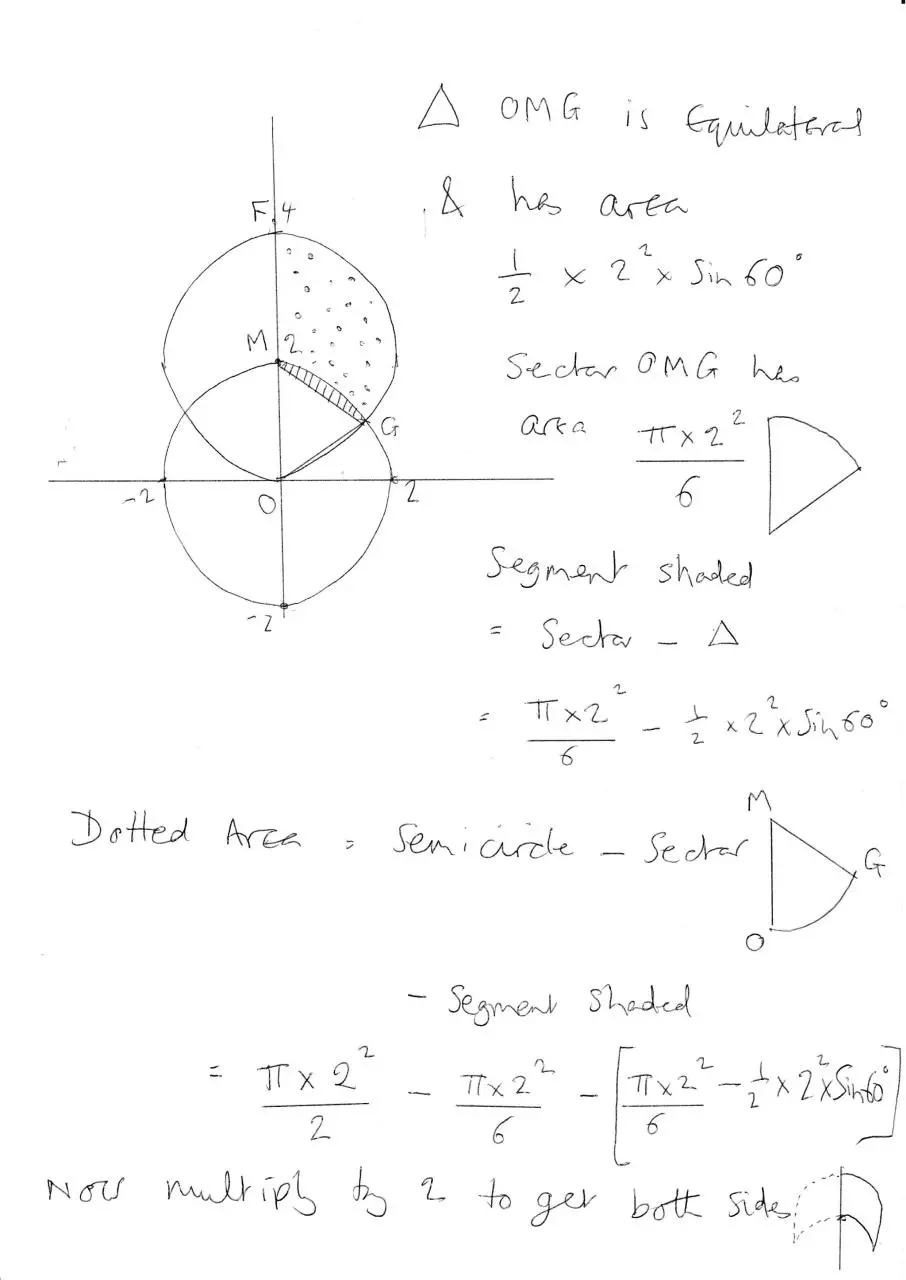 △ OMG is Equilateral
& has area
1/2 × 2² × Sin 60°
Sector OMG has
area π×2²/6
F 4
M 2
G
-2 O 2
-2
Segment shaded
= Sector – △
= π×2²/6 – 1/2 ×2²×Sin60°
Dotted Area = Semicircle – Sector
M
G
O
– Segment shaded
= π×2²/2 – π×2²/6 – [π×2²/6 – 1/2 × 2²×Sin60°]
Now multiply by 2 to get both sides